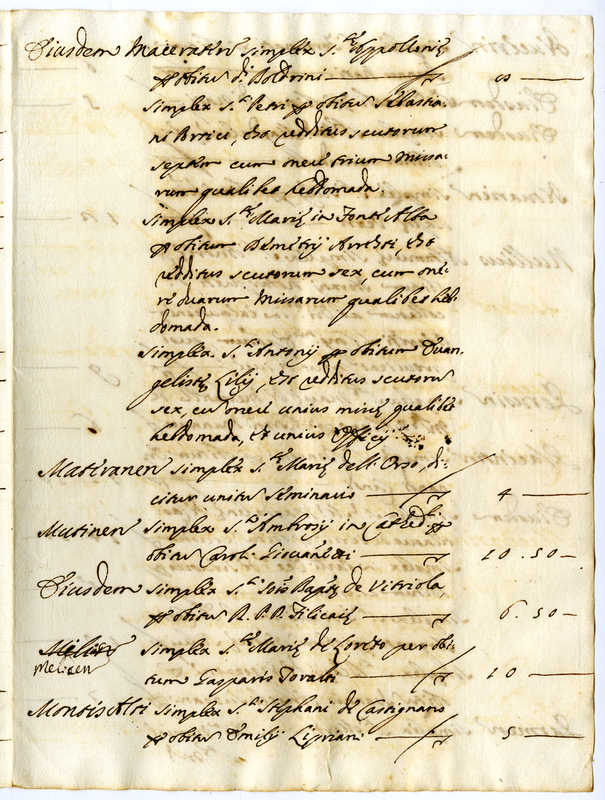 Eiusdem Maceraten simplex S.tæ Appolloniæ
p obitus D. Boldrini
simplex S.ti Petri p obitus Sebastia-
ni Bricci, est redditus scutorum
septem cum onere trium missa-
rum qualibet hebdomada.
simplex S.tæ Mariæ in Fonte Alba
p obitum Demetrij, est
redditus scutorum sex, cum one-
re duarum Missarum qualibet heb-
domada.
simplex S.ti Antonij p obitum Evan-
gelistæ Lilij, est redditus scutorum
sex, cu onere unius missæ qualibet
hebdomada, et unius Officij
Materanen simplex S.tæ Mariæ dell'Orso, di-
citur unitus seminario 4
Mutinen simplex S.ti Ambrosij in Cathed.li p
obitus Caroli Giovanetti 10.50
Eiusdem simplex S.ti Jois Baptæ de Vitriola,
p obitus R.P.D. Filicaiæ 6.50
simplex S.tæ Mariæ de Loreto per obi-
Meliten
tum Gasparis 10
Montis Alti simplex S.ti Stephani de Castignano
p obitus Emilij Cipriani 5